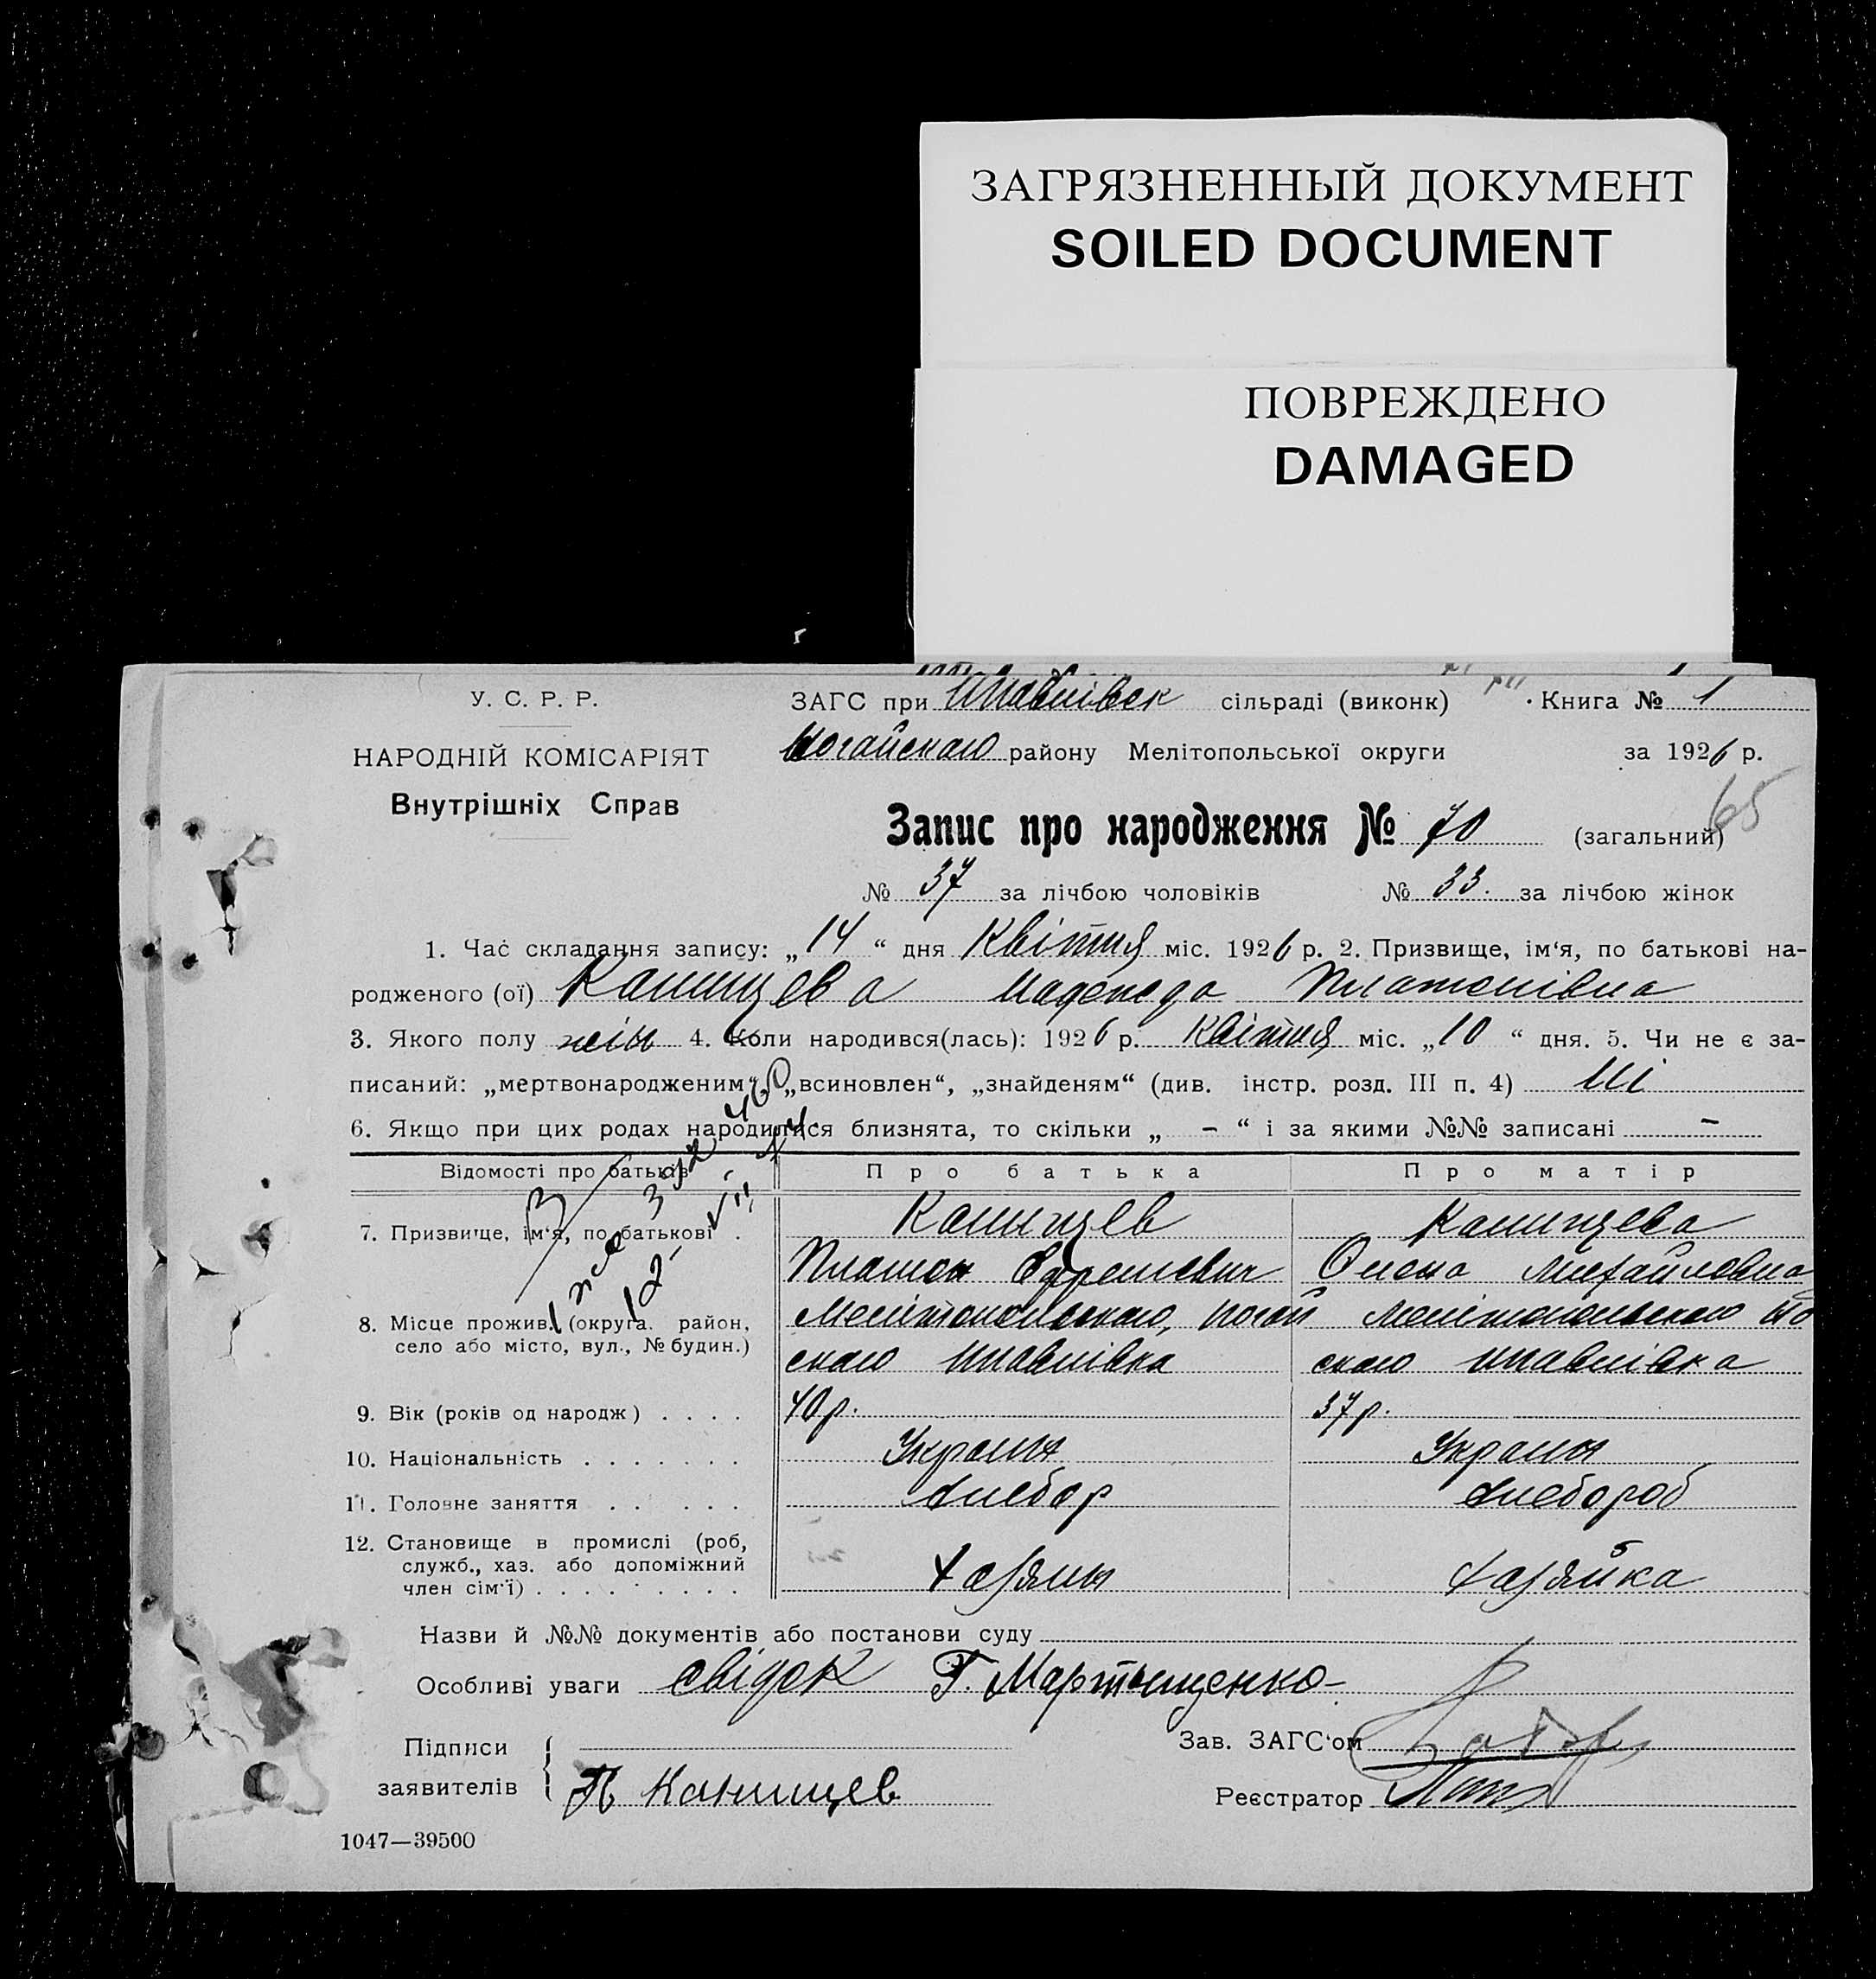 ЗАГРЯЗНЕННЫЙ ДОКУМЕНТ
SOILED DOCUMENT
ПОВРЕЖДЕНО
DAMAGED
У. С. Р. Р.
НАРОДНІЙ КОМІСАРІЯТ
Внутрішніх Справ
ЗАГС при сільраді (виконк) Книга № 1
Ногайского району Мелітопольської округи за 1926 р.
65
Запис про народження № 70 (загальний)
№ 37 за лічбою чоловіків № 33. за лічбою жінок
1. Час складання запису: „14“ дня Квітня міс. 1926 р. 2. Призвище, ім‘я, по батькові на-
родженого (ої) Канищева Надежда Платонівна
3. Якого полу жін 4. Коли народився(лась): 1926 р. Квітня міс. „10“ дня. 5. Чи не є за-
писаний: „мертвонародженим“, „всиновлен“, „знайденям“ (див. інстр. розд. III п. 4) Ні
6. Якщо при цих родах народилися близнята, то скільки „ - “ і за якими №№ записані -
Відомості про батьків Про батька Про матір
7. Призвище, ім‘я, по батькові . Канищев Канищева
Платон Ефремович Олена Михайловна
8. Місце прожив. (округа. район, Мелітопольского, Ногай Мелітопольского Но
село або місто, вул., № будин.) ского ского
9. Вік (років од народж) . . . . 40 р. 37 р.
10. Національність . . . . . . . Украин Украин
11. Головне заняття . . . . . Хлебор Хлебороб
12. Становище в промислі (роб,
служб., хаз. або допоміжний
член сім‘ї) . . . . . . . . . Хазяин Хазяйка
Назви й №№ документів або постанови суду
Особливі уваги свідок Г. Мартыщенко
Підписи
заявителів П Канищев
Зав. ЗАГС‘ом
Реєстратор
1047—39500